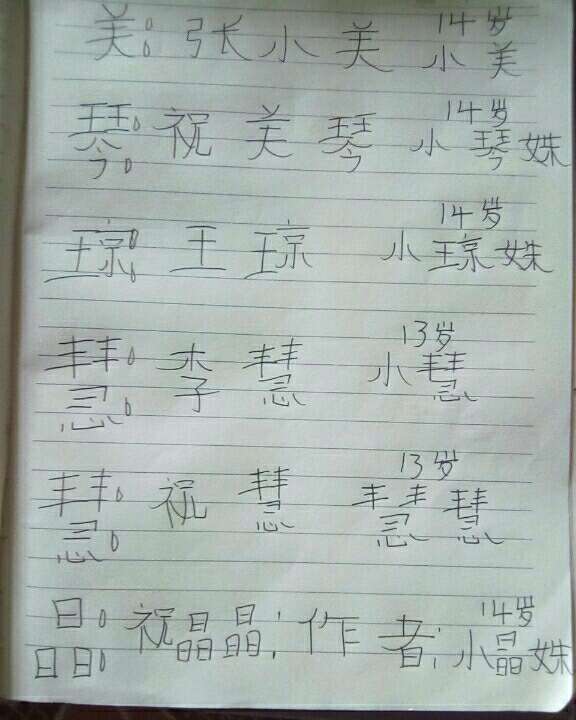 美：张小美 14岁 小美
琴：祝美琴 14岁 小琴姝
琼：王琼 14岁 小琼姝
慧：李慧 13岁 小慧
慧：祝慧 13岁 慧慧
晶：祝晶晶；作者；14岁 小晶姝